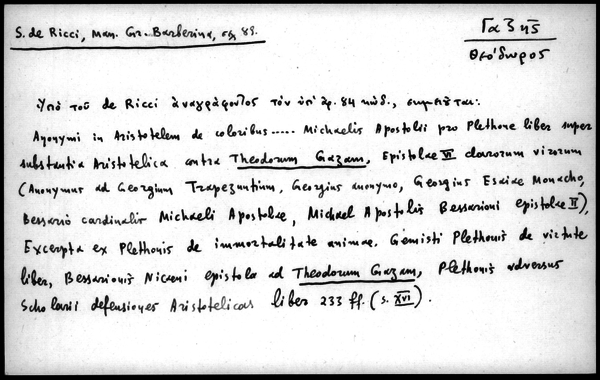 S. de Ricci, Man. Gr. Barberina, σελ. 89.
Γαζῆς
Θεόδωρος
Ὑπὸ τοῦ de Ricci ἀναγράφοντος τὸν ὑπ' ἀρ. 84 κώδ., σημειοῦται:
Anonymi in Aristotelem de coloribus ..... Michaelis Apostolii pro Plethone liber super
substantia Aristotelica contra Theodorum Gazam, Epistolae VI clarorum virorum
(Anonymus ad Georgium Trapezuntium, Georgius anonymo, Georgius Esaiae Monacho,
Bessario cardinalis Michaeli Apostolae, Michael Apostolis Bessarioni epistolae II),
Excerpta ex Plethonis de immortalitate animae. Gemisti Plethonis de virtute
liber, Bessarionis Nicaeni epistola ad Theodorum Gazam, Plethonis adversus
Scholarii defensiones Aristotelicas liber 233 ff. (s. XVI).